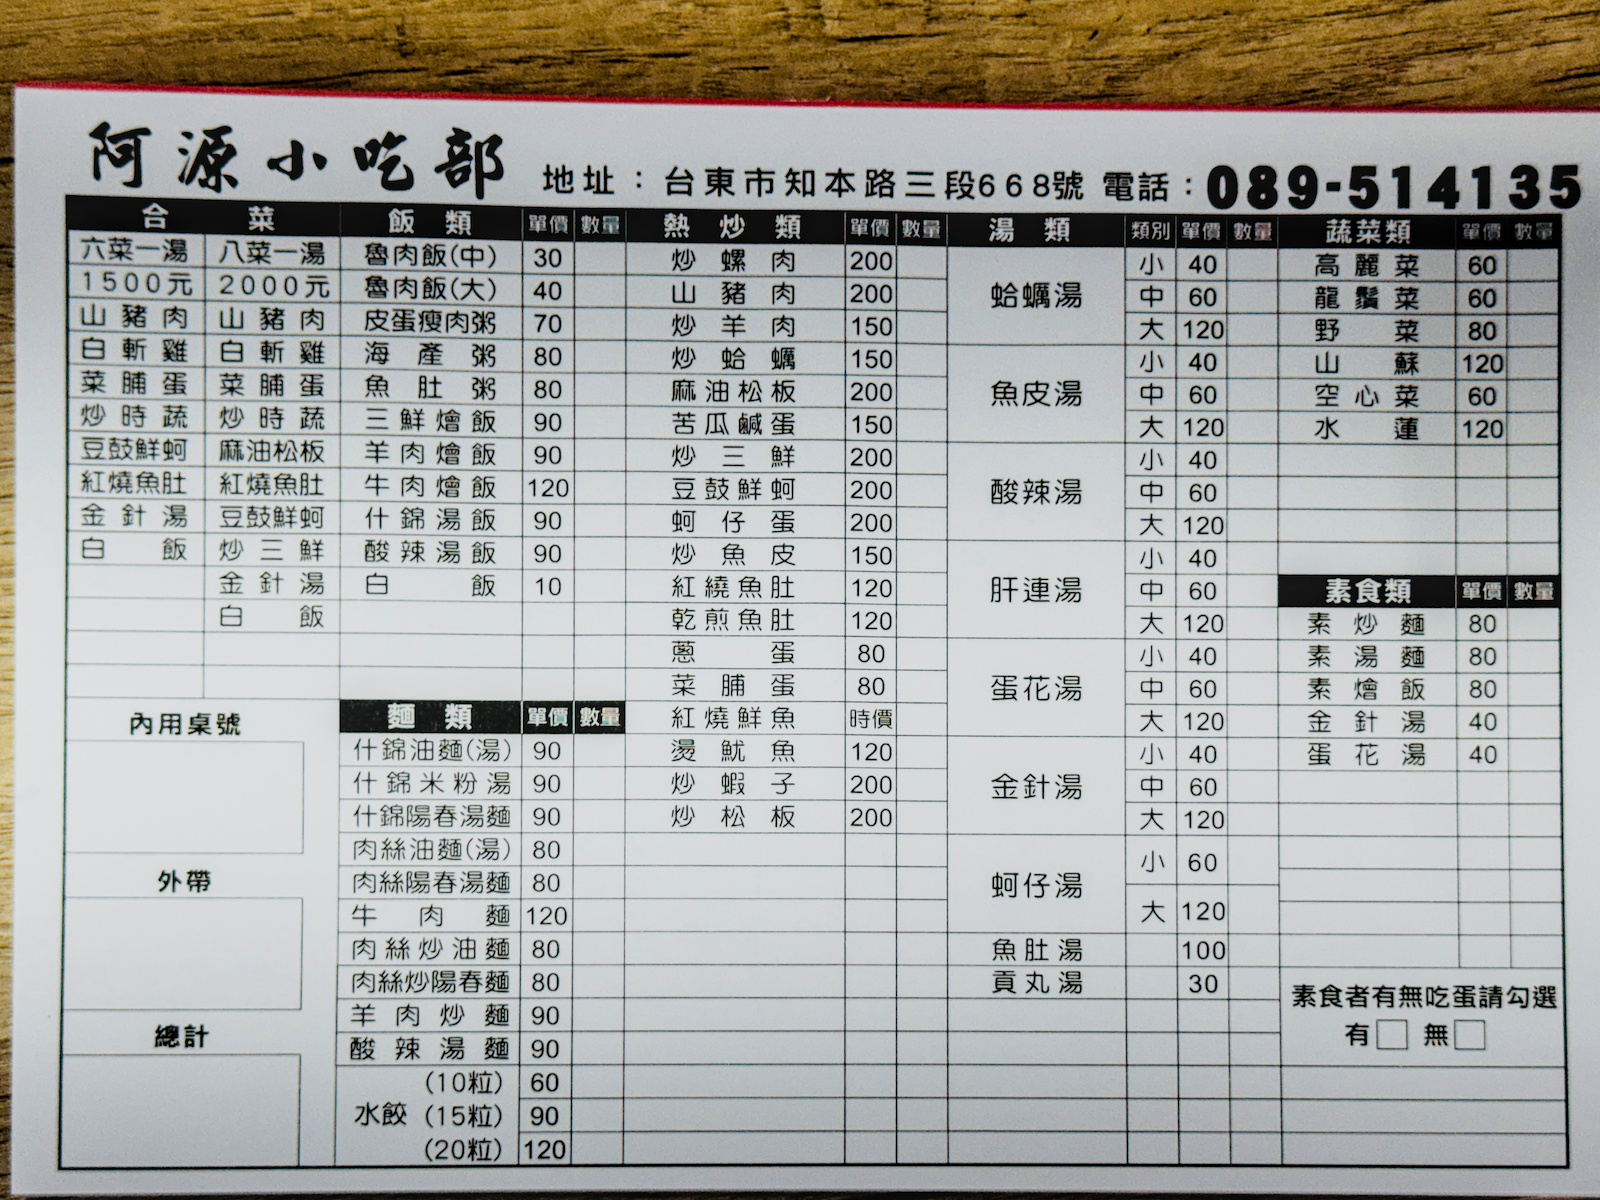 阿源小吃部 地址：台東市知本路三段668號 電話：089-514135
合菜
六菜一湯 八菜一湯
1500元 2000元
山豬肉 山豬肉
白斬雞 白斬雞
菜脯蛋 菜脯蛋
炒時蔬 炒時蔬
豆鼓鮮蚵 麻油松板
紅燒魚肚 紅燒魚肚
金針湯 豆鼓鮮蚵
白飯 炒三鮮
金針湯
白飯
內用桌號
外帶
總計
飯類 單價 數量
魯肉飯(中) 30
魯肉飯(大) 40
皮蛋瘦肉粥 70
海產粥 80
魚肚粥 80
三鮮燴飯 90
羊肉燴飯 90
牛肉燴飯 120
什錦湯飯 90
酸辣湯飯 90
白飯 10
麵類 單價 數量
什錦油麵(湯) 90
什錦米粉湯 90
什錦陽春湯麵 90
肉絲油麵(湯) 80
肉絲陽春湯麵 80
牛肉麵 120
肉絲炒油麵 80
肉絲炒陽春麵 80
羊肉炒麵 90
酸辣湯麵 90
水餃 (10粒) 60
(15粒) 90
(20粒) 120
熱炒類 單價 數量
炒螺肉 200
山豬肉 200
炒羊肉 150
炒蛤蠣 150
麻油松板 200
苦瓜鹹蛋 150
炒三鮮 200
豆鼓鮮蚵 200
蚵仔蛋 200
炒魚皮 150
紅繞魚肚 120
乾煎魚肚 120
蔥蛋 80
菜脯蛋 80
紅燒鮮魚 時價
燙魷魚 120
炒蝦子 200
炒松板 200
湯類 類別 單價 數量
蛤蠣湯 小 40
中 60
大 120
魚皮湯 小 40
中 60
大 120
酸辣湯 小 40
中 60
大 120
肝連湯 小 40
中 60
大 120
蛋花湯 小 40
中 60
大 120
金針湯 小 40
中 60
大 120
蚵仔湯 小 60
大 120
魚肚湯 100
貢丸湯 30
蔬菜類 單價 數量
高麗菜 60
龍鬚菜 60
野菜 80
山蘇 120
空心菜 60
水蓮 120
素食類 單價 數量
素炒麵 80
素湯麵 80
素燴飯 80
金針湯 40
蛋花湯 40
素食者有無吃蛋請勾選
有□ 無□